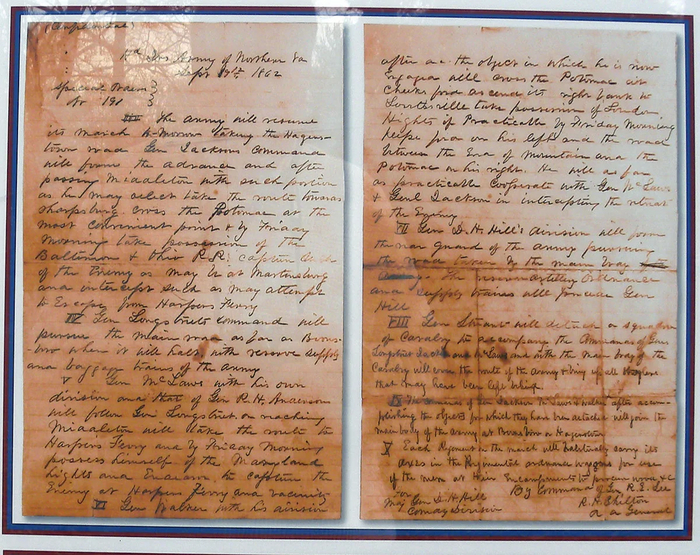 (Confidential)
Hd Qrs Army of Northern Va
Sept 9th 1862
Special Orders }
No 191 }
III The Army will resume
its march to-morrow taking the Hagers-
town road Gen Jacksons Command
will form the advance and after
passing Middleton with such portion
as he may select take the route towards
Sharpsburg cross the Potomac at the
most convenient point & by Friday
Morning take possession of the
Baltimore & Ohio R.R. capture such
of the Enemy as may be at Martinsburg
and intercept such as may attempt
to Escape from Harpers Ferry
IV Gen Longstreets Command will
pursue the main road as far as Boons-
boro where it will halt with reserve supply
and baggage trains of the army
V Gen McLaws with his own
division and that of Gen R. H. Anderson
will follow Gen Longstreet on reaching
Middleton will take the route to
Harpers Ferry and by Friday Morning
possess himself of the Maryland
hights and Endeavor to capture the
Enemy at Harpers Ferry and vacinity
VI Gen Walker with his division
after ac the object in which he is now
Engaged will cross the Potomac at
Cheeks ford ascend its right bank to
Lovettsville take possession of Loudon
Hights if Practicable by Friday Mourning
Keeps ford on his left and the road
between the End of Mountain and the
Potomac on his right. He will as far
as practicable Cooperate with Gen McLaws
& Genl Jackson in intercepting the retreat
of the Enemy
VII Gen D. H. Hill's division will form
the rear guard of the Army pursuing
the road taken by the main body
The reserve artillery Ordnance
and supply trains will precede Gen
Hill
VIII Gen Stuart will detach a squadron
of Cavalry to accompany the Commands of Gens
Longstreet Jackson and McLaws and with the main body of the
Cavalry will cover the route of the Army & bring up all straglers
that may have been left behind
IX The commands of Gen Jackson McLaws & Walker after accom-
plishing the objects for which they have been detached will join the
main body of the Army at Boonsboro or Hagerstown
X Each Regiment on the march will habitually carry its
axes in the Regimental ordnance wagons for use
of the men at their Encampments to procure wood &c
By Command of Gen R. E. Lee
For R. H. Chilton
Maj Gen D. H. Hill A A General
Comdg Division